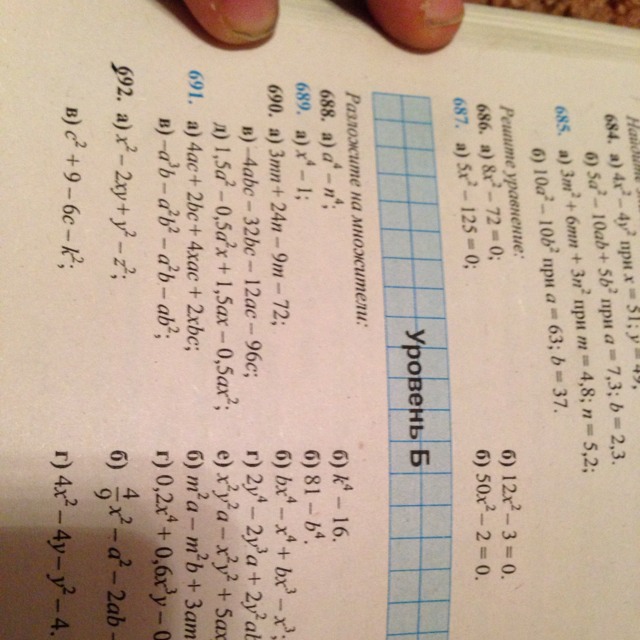 684. а) 4x² – 4y² при x = 51; y = 49.
б) 5a² – 10ab + 5b² при a = 7,3; b = 2,3.
685. а) 3m² + 6mn + 3n² при m = 4,8; n = 5,2;
б) 10a² – 10b² при a = 63; b = 37.
Решите уравнение:
686. а) 8x² – 72 = 0; б) 12x² – 3 = 0.
687. а) 5x² – 125 = 0; б) 50x² – 2 = 0.
Уровень Б
Разложите на множители:
688. а) a⁴ – n⁴; б) k⁴ – 16.
689. а) x⁴ – 1; б) 81 – b⁴.
690. а) 3mn + 24n – 9m – 72; б) bx⁴ – x⁴ + bx³ – x³;
в) –4abc – 32bc – 12ac – 96c; г) 2y⁴ – 2y³a + 2y²ab
д) 1,5a² – 0,5a²x + 1,5ax – 0,5ax²; е) x³y²a – x³y² + 5ax
691. а) 4ac + 2bc + 4xac + 2xbc; б) m²a – m²b + 3am
в) –a³b – a²b² – a²b – ab²; г) 0,2x⁴ + 0,6x³y – 0
692. а) x² – 2xy + y² – z²; б) 4/9x² – a² – 2ab –
в) c² + 9 – 6c – k²; г) 4x² – 4y – y² – 4.